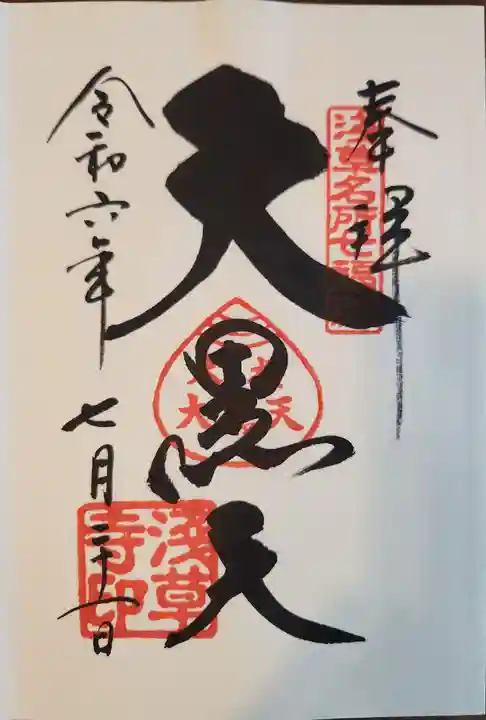 奉拝
浅草名所七福神
大黒天
浅草寺印
令和六年七月二十一日